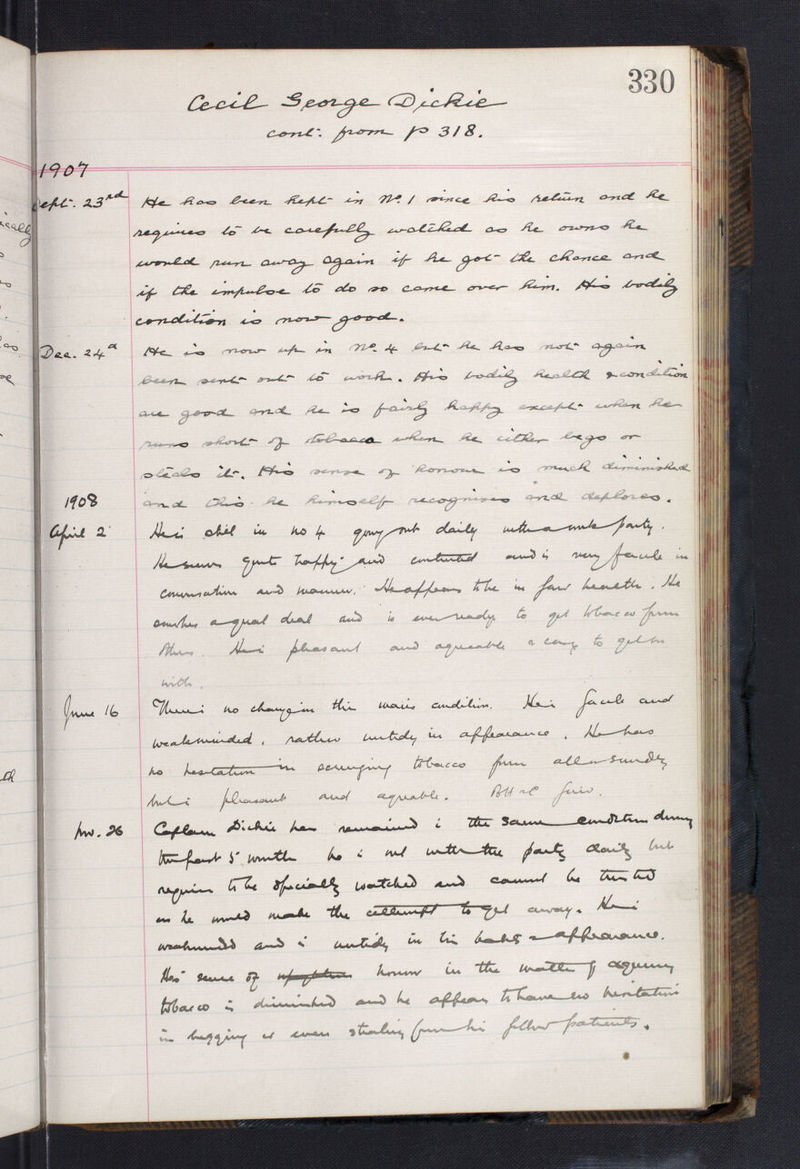 330
Cecil George Dickie
cont: from p 318.
1907
Sept. 23rd He has been kept in No. 1 since his return and he
requires to be carefully watched as he owns he
would run away again if he got the chance and
if the impulse to do so came over him. His bodily
condition is now good.
Dec. 24th He is now up in No. 4 but he has not again
been sent out to work. His bodily health & condition
are good and he is fairly happy except when he
runs short of tobacco when he either begs or
steals it. His sense of honour is much diminished
1908 and this he himself recognises and deplores.
April 2 He is still in no 4 going out daily with a work party.
He seems quite happy and contented and is very facile in
conversation and manner. He appears to be in fair health. He
smokes a great deal and is ever ready to get tobacco from
others. He is pleasant and agreeable & easy to get on
with.
June 16 There is no change in this man's condition. He is facile and
weakminded, rather untidy in appearance. He has
no hesitation in scrounging tobacco from all & sundry
but is pleasant and agreeable. B H & C fair.
Nov. 26 Captain Dickie has remained in the same condition during
the past 5 months he is out with the party daily but
requires to be specially watched and cannot be trusted
as he would make the attempt to get away. He is
weakminded and is untidy in his habits & appearance.
His sense of honour in the matter of
tobacco is diminished and he appears to have no hesitation
in begging or even stealing from his fellow patients.